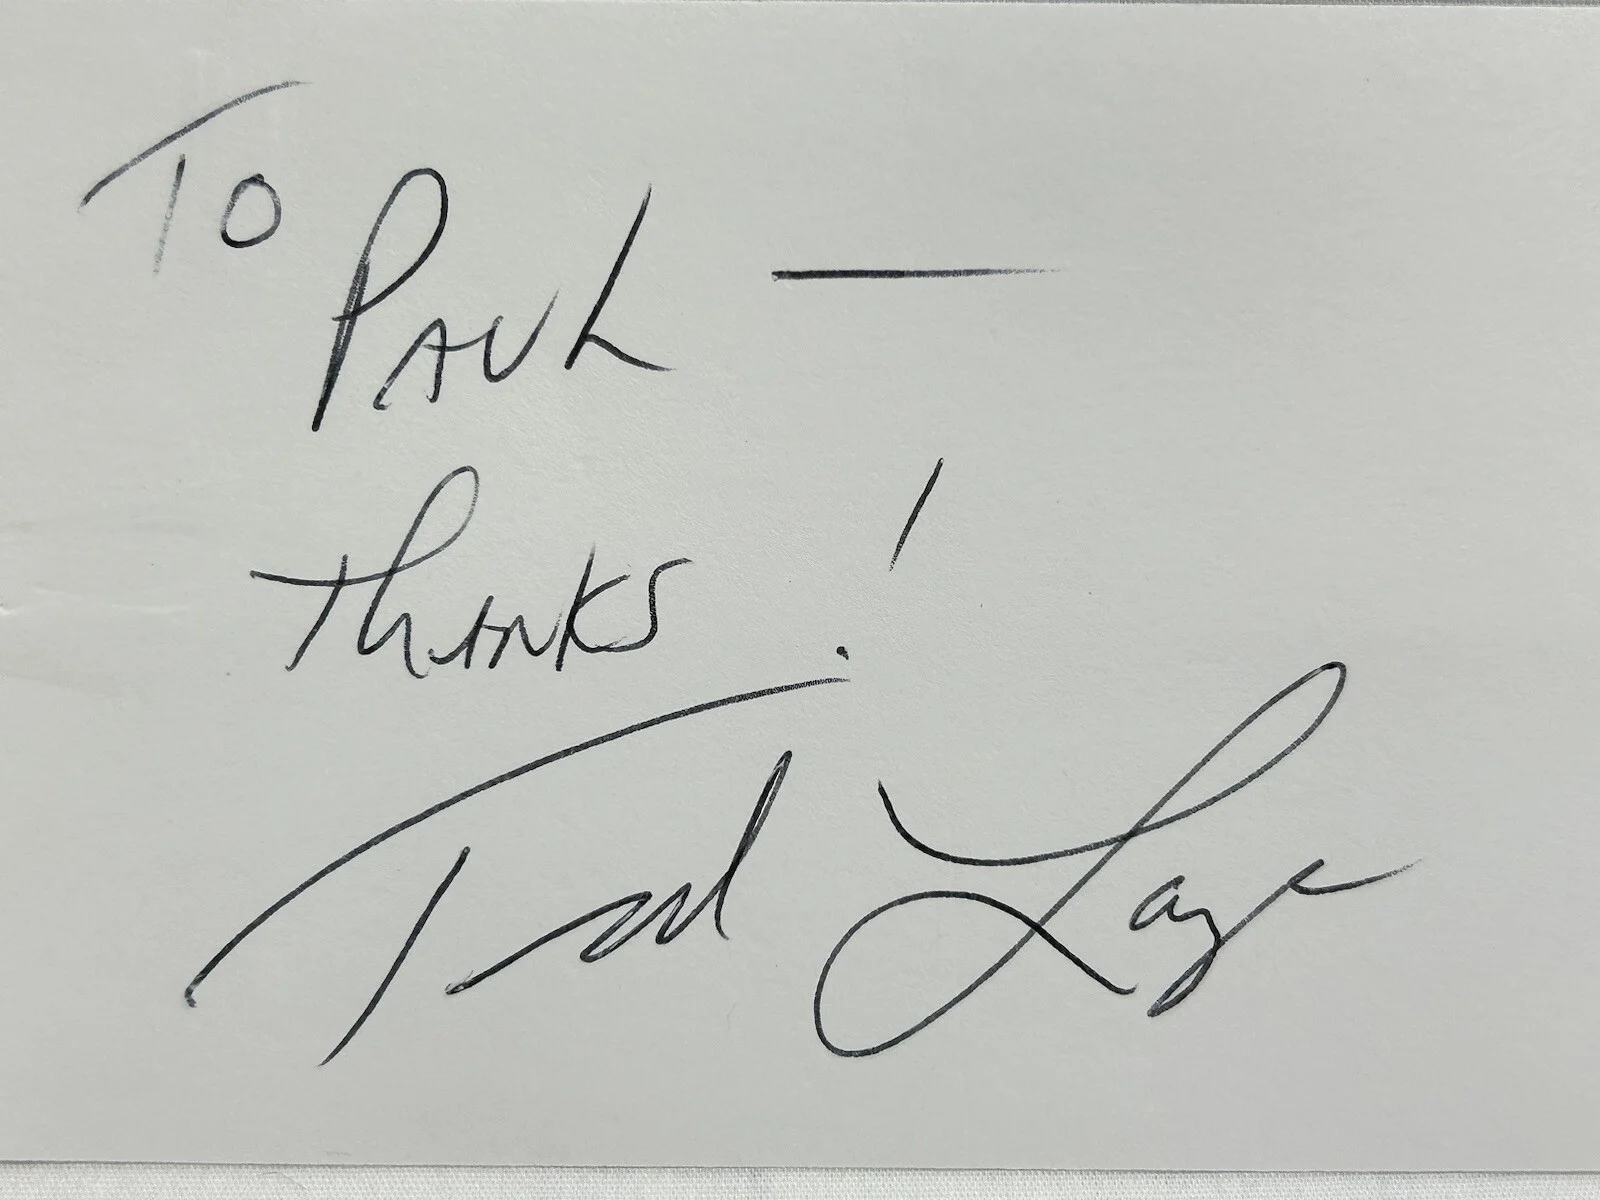 To PAUL —
THANKS!
Ted Lange